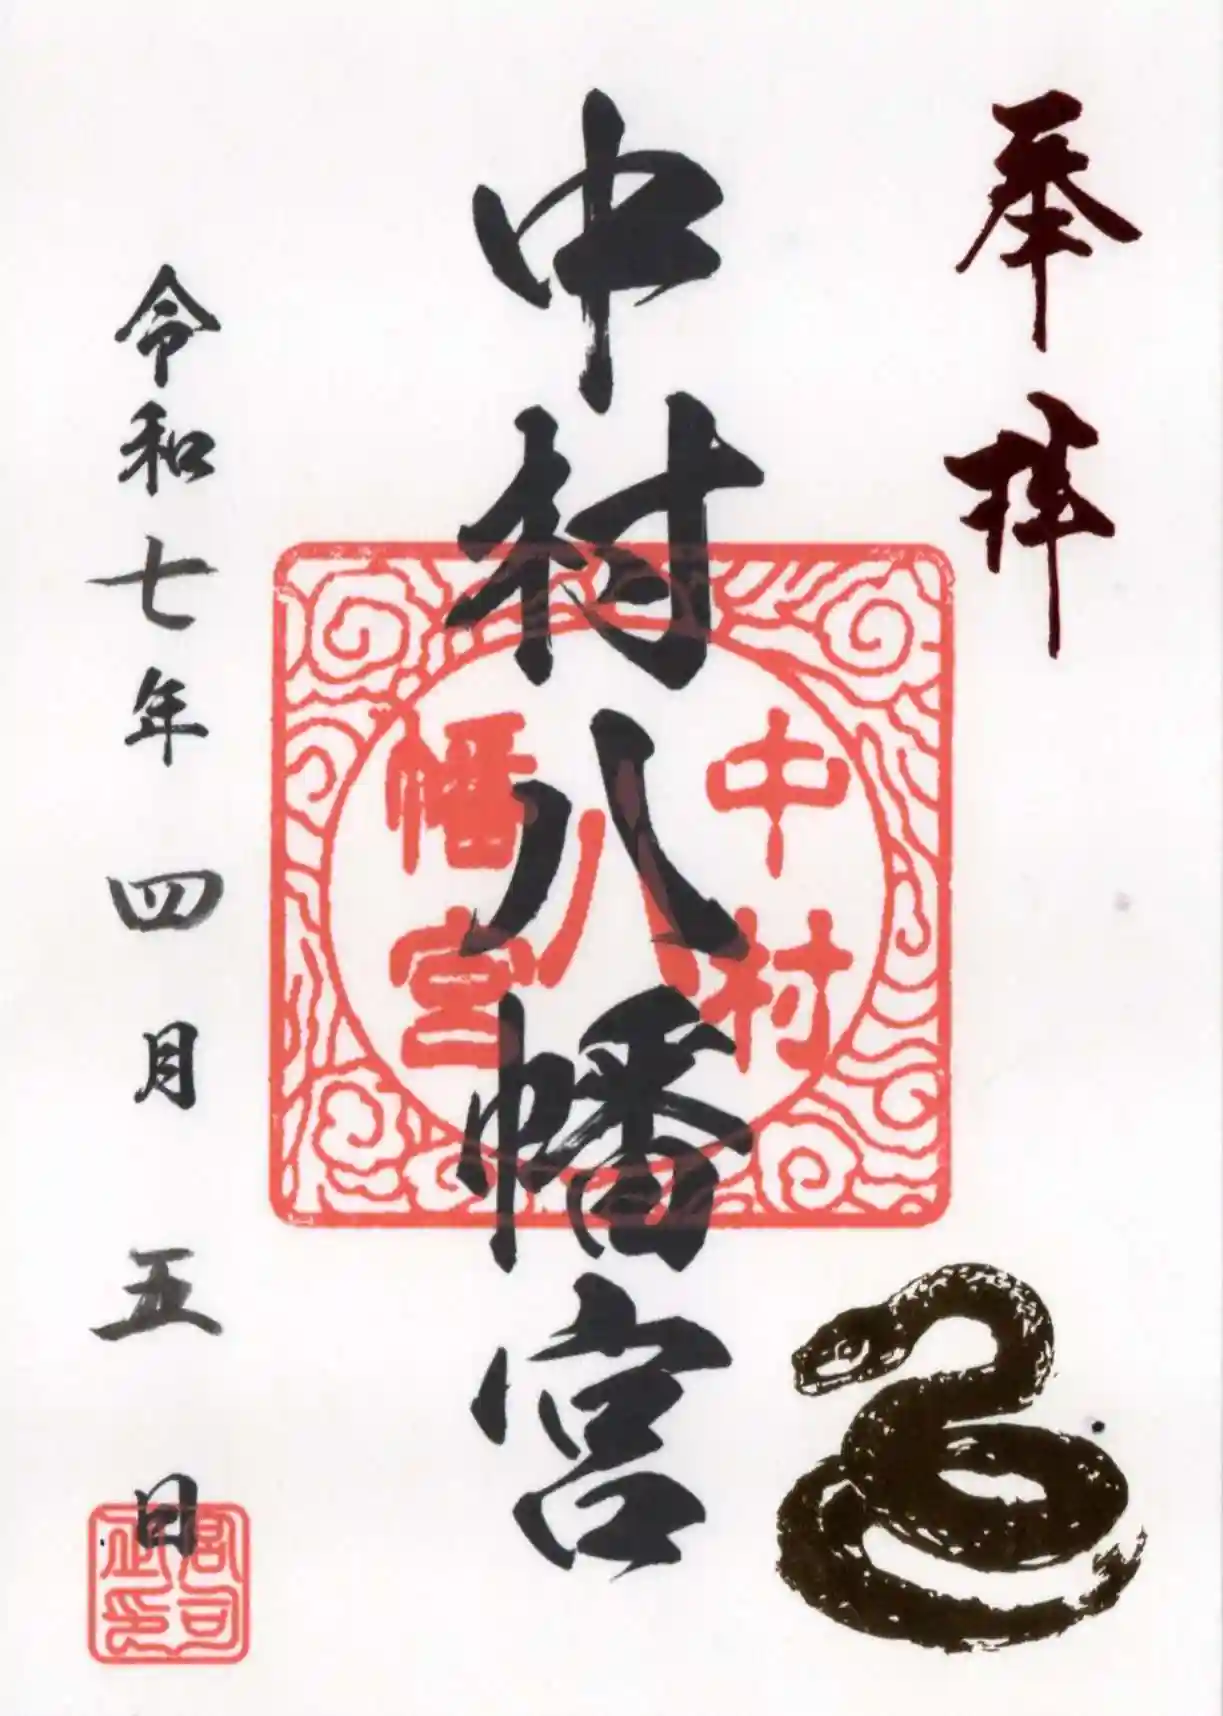 奉拝
中村八幡宮
中村
八
幡宮
令和七年四月五日
宮司之印